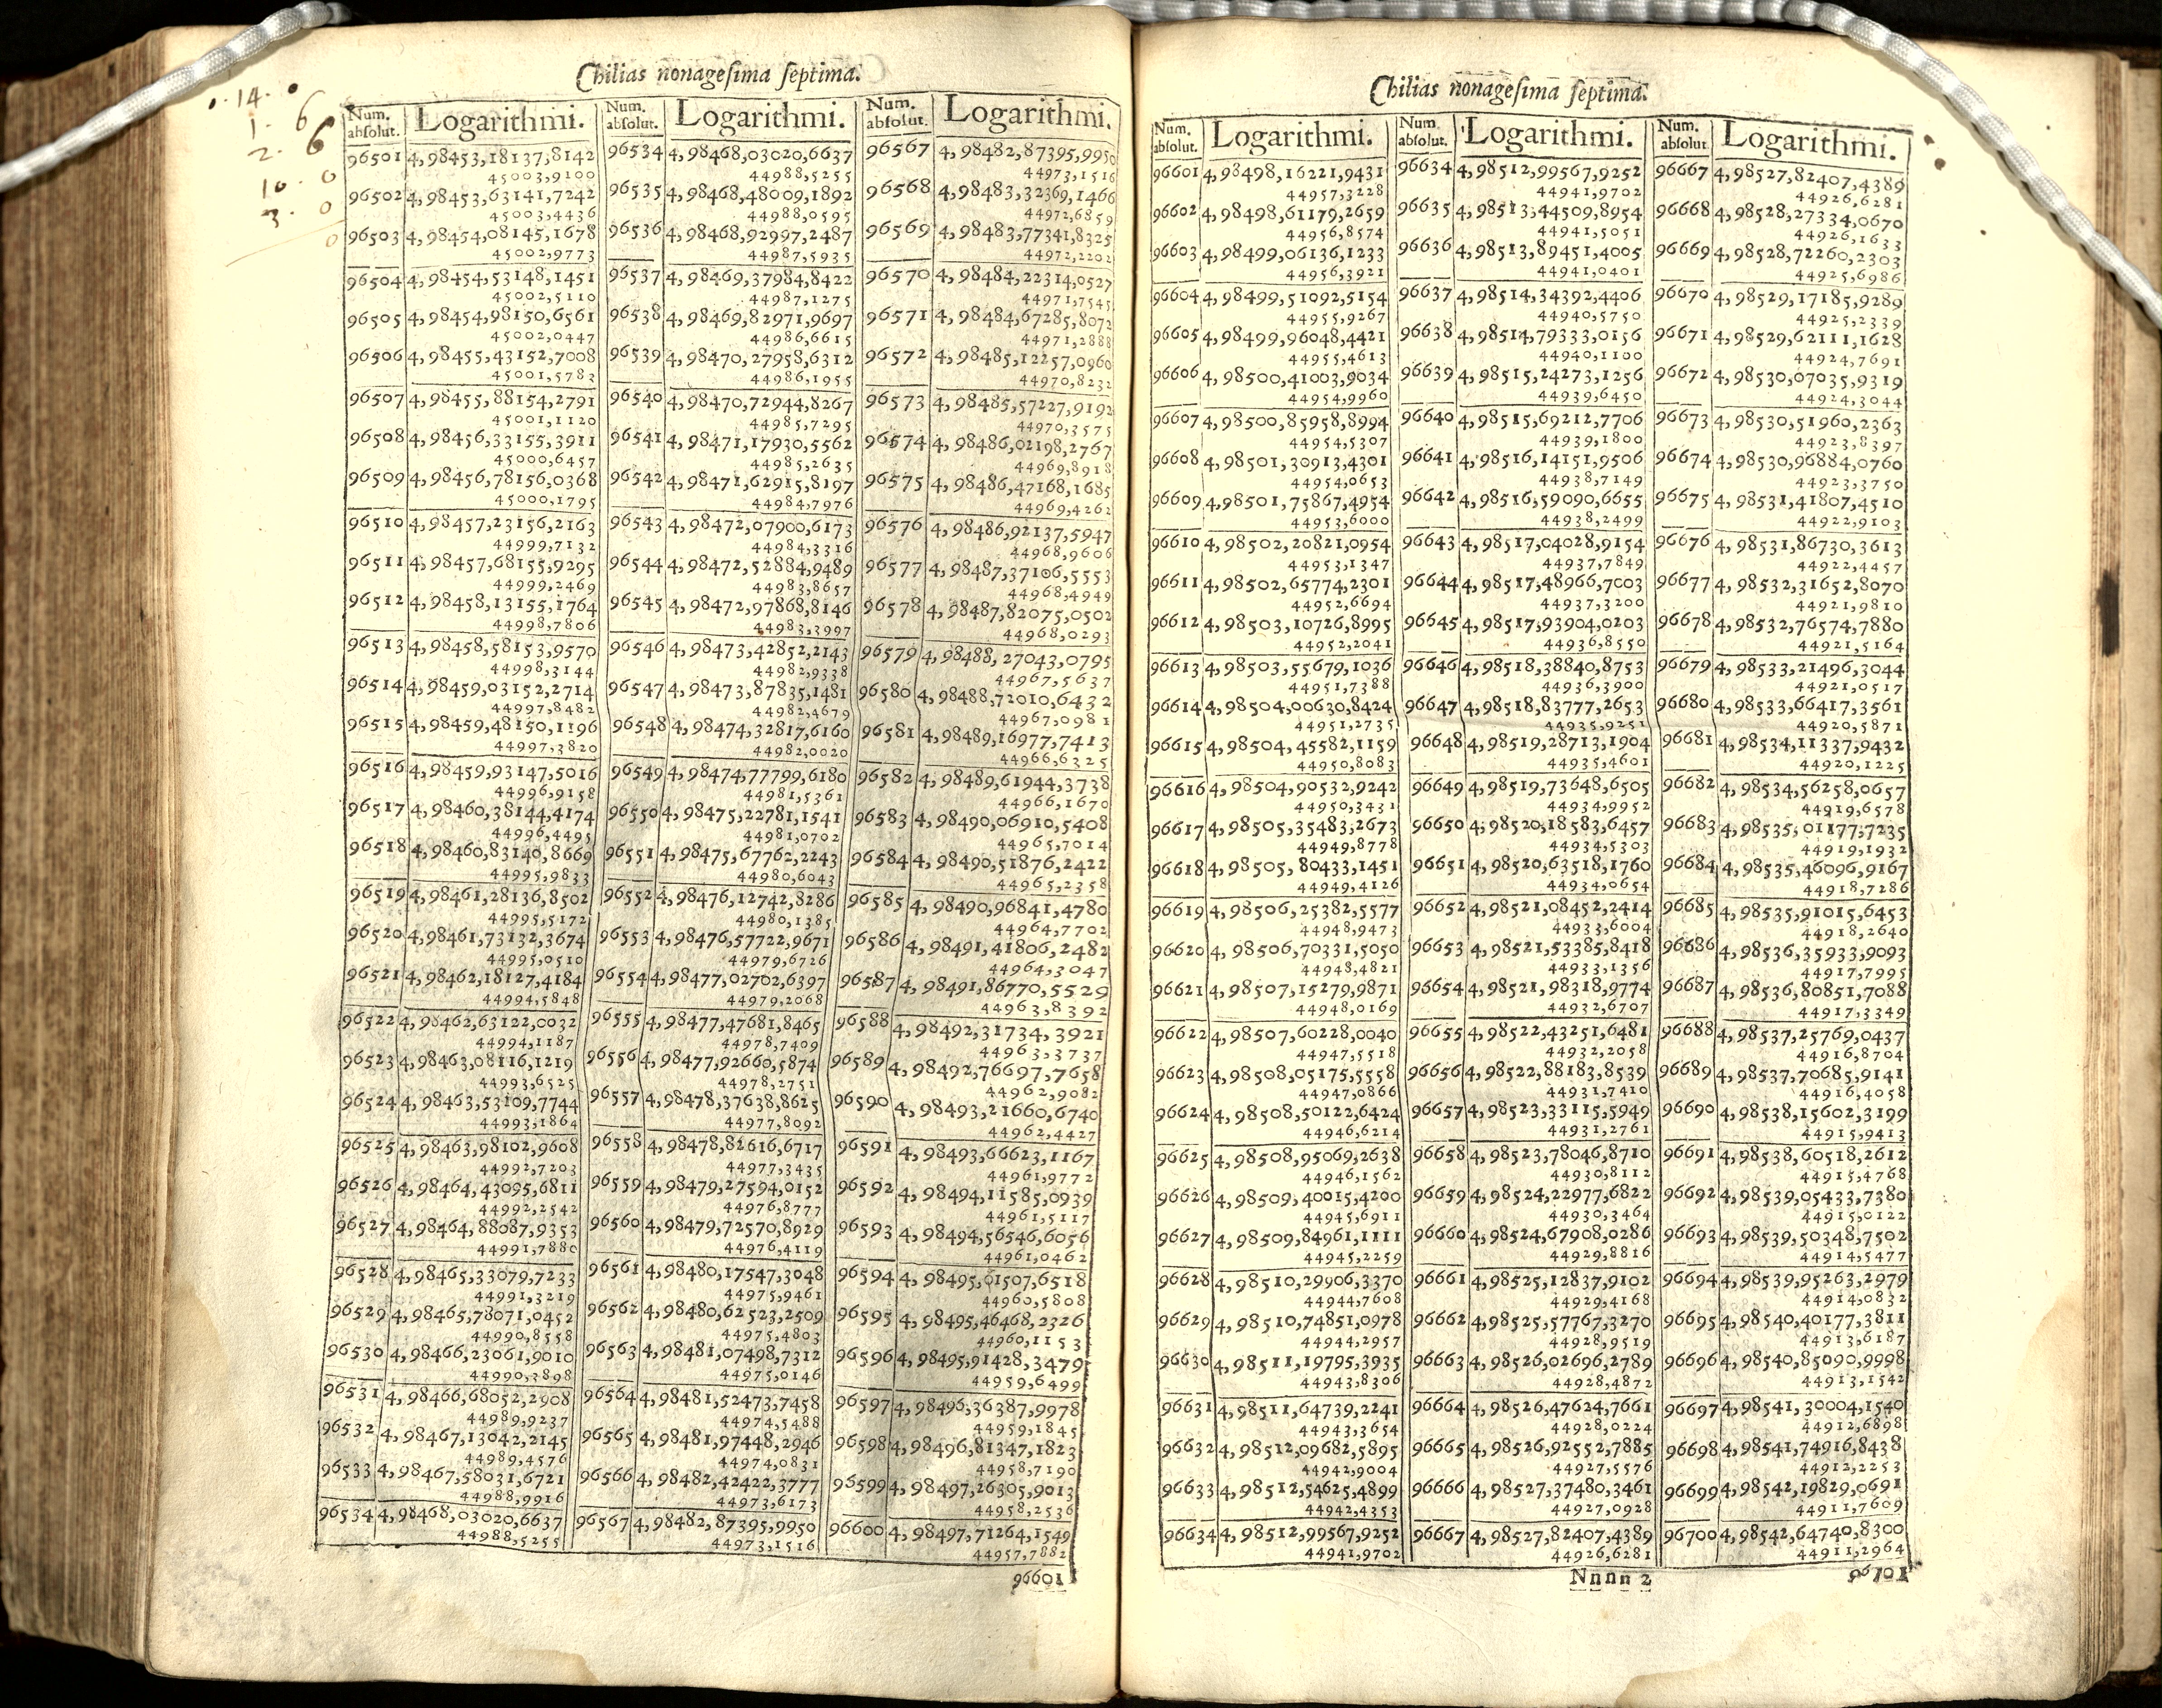 Chilias nonagesima septima.
14.
1. 6
2. 6
10. 0
3. 0
0
Num. absolut. Logarithmi.
96501 4,98453,18137,8142
45003,9100
96502 4,98453,63141,7242
45003,4436
96503 4,98454,08145,1678
45002,9773
96504 4,98454,53148,1451
45002,5110
96505 4,98454,98150,6561
45002,0447
96506 4,98455,43152,7008
45001,5783
96507 4,98455,88154,2791
45001,1120
96508 4,98456,33155,3911
45000,6457
96509 4,98456,78156,0368
45000,1795
96510 4,98457,23156,2163
44999,7132
96511 4,98457,68155,9295
44999,2469
96512 4,98458,13155,1764
44998,7806
96513 4,98458,58153,9570
44998,3144
96514 4,98459,03152,2714
44997,8482
96515 4,98459,48150,1196
44997,3820
96516 4,98459,93147,5016
44996,9158
96517 4,98460,38144,4174
44996,4495
96518 4,98460,83140,8669
44995,9833
96519 4,98461,28136,8502
44995,5172
96520 4,98461,73132,3674
44995,0510
96521 4,98462,18127,4184
44994,5848
96522 4,98462,63122,0032
44994,1187
96523 4,98463,08116,1219
44993,6525
96524 4,98463,53109,7744
44993,1864
96525 4,98463,98102,9608
44992,7203
96526 4,98464,43095,6811
44992,2542
96527 4,98464,88087,9353
44991,7880
96528 4,98465,33079,7233
44991,3219
96529 4,98465,78071,0452
44990,8558
96530 4,98466,23061,9010
44990,3898
96531 4,98466,68052,2908
44989,9237
96532 4,98467,13042,2145
44989,4576
96533 4,98467,58031,6721
44988,9916
96534 4,98468,03020,6637
44988,5255
Num. absolut. Logarithmi.
96534 4,98468,03020,6637
44988,5255
96535 4,98468,48009,1892
44988,0595
96536 4,98468,92997,2487
44987,5935
96537 4,98469,37984,8422
44987,1275
96538 4,98469,82971,9697
44986,6615
96539 4,98470,27958,6312
44986,1955
96540 4,98470,72944,8267
44985,7295
96541 4,98471,17930,5562
44985,2635
96542 4,98471,62915,8197
44984,7976
96543 4,98472,07900,6173
44984,3316
96544 4,98472,52884,9489
44983,8657
96545 4,98472,97868,8146
44983,3997
96546 4,98473,42852,2143
44982,9338
96547 4,98473,87835,1481
44982,4679
96548 4,98474,32817,6160
44982,0020
96549 4,98474,77799,6180
44981,5361
96550 4,98475,22781,1541
44981,0702
96551 4,98475,67762,2243
44980,6043
96552 4,98476,12742,8286
44980,1385
96553 4,98476,57722,9671
44979,6726
96554 4,98477,02702,6397
44979,2068
96555 4,98477,47681,8465
44978,7409
96556 4,98477,92660,5874
44978,2751
96557 4,98478,37638,8625
44977,8092
96558 4,98478,82616,6717
44977,3435
96559 4,98479,27594,0152
44976,8777
96560 4,98479,72570,8929
44976,4119
96561 4,98480,17547,3048
44975,9461
96562 4,98480,62523,2509
44975,4803
96563 4,98481,07498,7312
44975,0146
96564 4,98481,52473,7458
44974,5488
96565 4,98481,97448,2946
44974,0831
96566 4,98482,42422,3777
44973,6173
96567 4,98482,87395,9950
44973,1516
Num. absolut. Logarithmi.
96567 4,98482,87395,9950
44973,1516
96568 4,98483,32369,1466
44972,6859
96569 4,98483,77341,8325
44972,2202
96570 4,98484,22314,0527
44971,7545
96571 4,98484,67285,8072
44971,2888
96572 4,98485,12257,0960
44970,8232
96573 4,98485,57227,9192
44970,3575
96574 4,98486,02198,2767
44969,8918
96575 4,98486,47168,1685
44969,4262
96576 4,98486,92137,5947
44968,9606
96577 4,98487,37106,5553
44968,4949
96578 4,98487,82075,0502
44968,0293
96579 4,98488,27043,0795
44967,5637
96580 4,98488,72010,6432
44967,0981
96581 4,98489,16977,7413
44966,6325
96582 4,98489,61944,3738
44966,1670
96583 4,98490,06910,5408
44965,7014
96584 4,98490,51876,2422
44965,2358
96585 4,98490,96841,4780
44964,7702
96586 4,98491,41806,2482
44964,3047
96587 4,98491,86770,5529
44963,8392
96588 4,98492,31734,3921
44963,3737
96589 4,98492,76697,7658
44962,9082
96590 4,98493,21660,6740
44962,4427
96591 4,98493,66623,1167
44961,9772
96592 4,98494,11585,0939
44961,5117
96593 4,98494,56546,6056
44961,0462
96594 4,98495,01507,6518
44960,5808
96595 4,98495,46468,2326
44960,1153
96596 4,98495,91428,3479
44959,6499
96597 4,98496,36387,9978
44959,1845
96598 4,98496,81347,1823
44958,7190
96599 4,98497,26305,9013
44958,2536
96600 4,98497,71264,1549
44957,7882
96601
Chilias nonagesima septima.
Num. absolut. Logarithmi.
96601 4,98498,16221,9431
44957,3228
96602 4,98498,61179,2659
44956,8574
96603 4,98499,06136,1233
44956,3921
96604 4,98499,51092,5154
44955,9267
96605 4,98499,96048,4421
44955,4613
96606 4,98500,41003,9034
44954,9960
96607 4,98500,85958,8994
44954,5307
96608 4,98501,30913,4301
44954,0653
96609 4,98501,75867,4954
44953,6000
96610 4,98502,20821,0954
44953,1347
96611 4,98502,65774,2301
44952,6694
96612 4,98503,10726,8995
44952,2041
96613 4,98503,55679,1036
44951,7388
96614 4,98504,00630,8424
44951,2735
96615 4,98504,45582,1159
44950,8083
96616 4,98504,90532,9242
44950,3431
96617 4,98505,35483,2673
44949,8778
96618 4,98505,80433,1451
44949,4126
96619 4,98506,25382,5577
44948,9473
96620 4,98506,70331,5050
44948,4821
96621 4,98507,15279,9871
44948,0169
96622 4,98507,60228,0040
44947,5518
96623 4,98508,05175,5558
44947,0866
96624 4,98508,50122,6424
44946,6214
96625 4,98508,95069,2638
44946,1562
96626 4,98509,40015,4200
44945,6911
96627 4,98509,84961,1111
44945,2259
96628 4,98510,29906,3370
44944,7608
96629 4,98510,74851,0978
44944,2957
96630 4,98511,19795,3935
44943,8306
96631 4,98511,64739,2241
44943,3654
96632 4,98512,09682,5895
44942,9004
96633 4,98512,54625,4899
44942,4353
96634 4,98512,99567,9252
44941,9702
Num. absolut. Logarithmi.
96634 4,98512,99567,9252
44941,9702
96635 4,98513,44509,8954
44941,5051
96636 4,98513,89451,4005
44941,0401
96637 4,98514,34392,4406
44940,5750
96638 4,98514,79333,0156
44940,1100
96639 4,98515,24273,1256
44939,6450
96640 4,98515,69212,7706
44939,1800
96641 4,98516,14151,9506
44938,7149
96642 4,98516,59090,6655
44938,2499
96643 4,98517,04028,9154
44937,7849
96644 4,98517,48966,7003
44937,3200
96645 4,98517,93904,0203
44936,8550
96646 4,98518,38840,8753
44936,3900
96647 4,98518,83777,2653
44935,9251
96648 4,98519,28713,1904
44935,4601
96649 4,98519,73648,6505
44934,9952
96650 4,98520,18583,6457
44934,5303
96651 4,98520,63518,1760
44934,0654
96652 4,98521,08452,2414
44933,6004
96653 4,98521,53385,8418
44933,1356
96654 4,98521,98318,9774
44932,6707
96655 4,98522,43251,6481
44932,2058
96656 4,98522,88183,8539
44931,7410
96657 4,98523,33115,5949
44931,2761
96658 4,98523,78046,8710
44930,8112
96659 4,98524,22977,6822
44930,3464
96660 4,98524,67908,0286
44929,8816
96661 4,98525,12837,9102
44929,4168
96662 4,98525,57767,3270
44928,9519
96663 4,98526,02696,2789
44928,4872
96664 4,98526,47624,7661
44928,0224
96665 4,98526,92552,7885
44927,5576
96666 4,98527,37480,3461
44927,0928
96667 4,98527,82407,4389
44926,6281
Num. absolut. Logarithmi.
96667 4,98527,82407,4389
44926,6281
96668 4,98528,27334,0670
44926,1633
96669 4,98528,72260,2303
44925,6986
96670 4,98529,17185,9289
44925,2339
96671 4,98529,62111,1628
44924,7691
96672 4,98530,07035,9319
44924,3044
96673 4,98530,51960,2363
44923,8397
96674 4,98530,96884,0760
44923,3750
96675 4,98531,41807,4510
44922,9103
96676 4,98531,86730,3613
44922,4457
96677 4,98532,31652,8070
44921,9810
96678 4,98532,76574,7880
44921,5164
96679 4,98533,21496,3044
44921,0517
96680 4,98533,66417,3561
44920,5871
96681 4,98534,11337,9432
44920,1225
96682 4,98534,56258,0657
44919,6578
96683 4,98535,01177,7235
44919,1932
96684 4,98535,46096,9167
44918,7286
96685 4,98535,91015,6453
44918,2640
96686 4,98536,35933,9093
44917,7995
96687 4,98536,80851,7088
44917,3349
96688 4,98537,25769,0437
44916,8704
96689 4,98537,70685,9141
44916,4058
96690 4,98538,15602,3199
44915,9413
96691 4,98538,60518,2612
44915,4768
96692 4,98539,05433,7380
44915,0122
96693 4,98539,50348,7502
44914,5477
96694 4,98539,95263,2979
44914,0832
96695 4,98540,40177,3811
44913,6187
96696 4,98540,85090,9998
44913,1542
96697 4,98541,30004,1540
44912,6898
96698 4,98541,74916,8438
44912,2253
96699 4,98542,19829,0691
44911,7609
96700 4,98542,64740,8300
44911,2964
Nnnn 2
96701